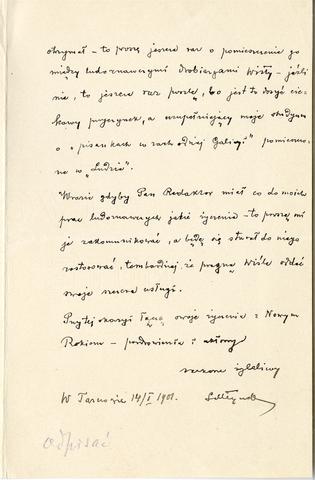 otrzymał – to proszę jeszcze raz o pomieszczenie go
między ludoznawczymi drobiazgami Wisły – jeśli
nie, to jeszcze raz poszlę, bo jest to dosyć cie-
kawy przyczynek, a uzupełniający moje studyum
o „pisankach w zachodniej Galicyi" pomieszczo-
ne w „Ludzie".
Wrazie gdyby Pan Redaktor miał co do moich
prac ludoznawczych jakie życzenia – to proszę mi
je zakomunikować, a będę się starał do niego
zastosować, tembardziej, że pragnę Wiśle oddać
swoje szczere usługi.
Przy tej okazyi łączę swoje życzenia z Nowym
Rokiem – pozdrowienia i ukłony
szczerze życzliwy
W Tarnowie 14/I 1901.
odpisać